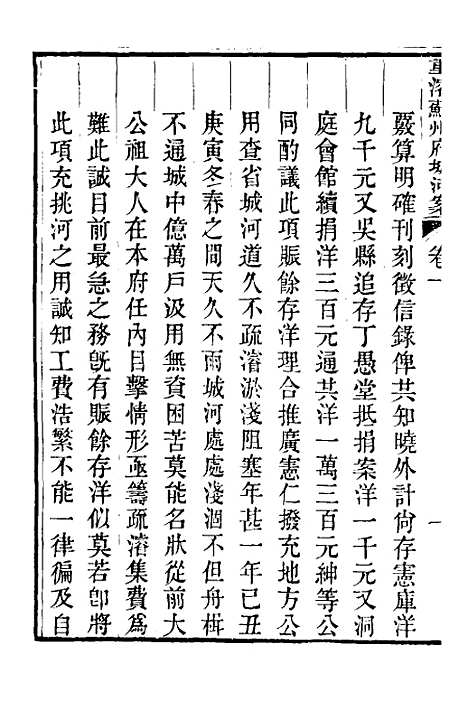 重濬蘇州府城河案 卷一 一
覈算明確刊刻徵信錄俾共知曉外計尙存憲庫洋
九千元又吳縣追存丁愚堂抵捐案洋一千元又洞
庭會館續捐洋三百元通共洋一萬三百元紳等公
同酌議此項賑餘存洋理合推廣憲仁撥充地方公
用查省城河道久不疏濬淤淺阻塞年甚一年己丑
庚寅冬春之間天久不雨城河處處淺涸不但舟楫
不通城中億萬戶汲用無資困苦莫能名狀從前大
公祖大人在本府任內目擊情形亟籌疏濬集費爲
難此誠目前最急之務旣有賑餘存洋似莫若卽將
此項充挑河之用誠知工費浩繁不能一律徧及自